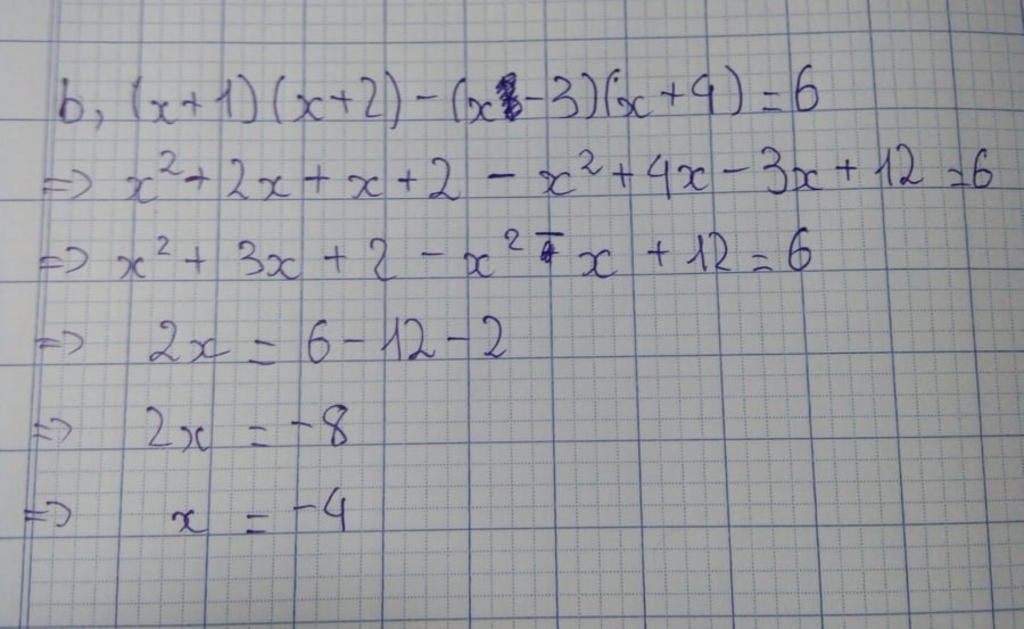 b, (x+1)(x+2)-(x-3)(x+4)=6
=> x²+2x+x+2-x²+4x-3x+12=6
=> x²+3x+2-x²-x+12=6
=> 2x=6-12-2
=> 2x=-8
=> x=-4